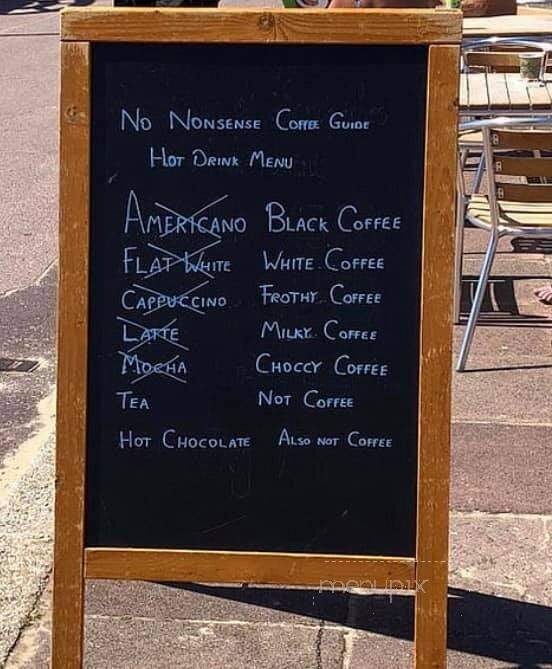 No Nonsense Coffee Guide
Hot Drink Menu
Americano Black Coffee
Flat White White Coffee
Cappuccino Frothy Coffee
Latte Milky Coffee
Mocha Choccy Coffee
Tea Not Coffee
Hot Chocolate Also not Coffee
menupix